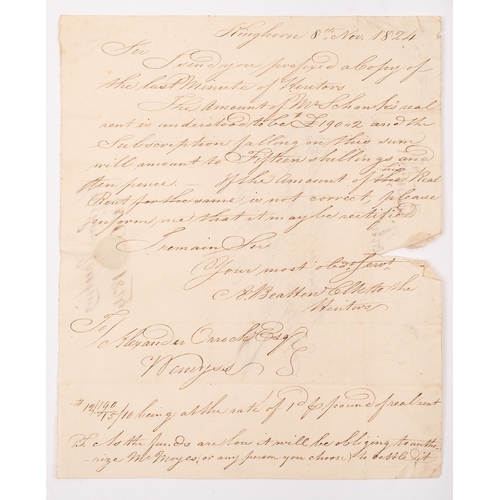 Kinghorn 8th Nov. 1824
Sir
I send you prefixed a Copy of
the last Minute of Heritors
The Amount of Mr Schank's real
rent is understood to be £190"2 and the
Subscription falling on this sum
will amount to Fifteen shillings and
ten pence If the Amount of his Real
Rent for the same, is not correct, please
inform me that it may be rectified
I remain Sir
Your most obdt Servt
A Beatson Clk to the
Heritors
To
Alexander Orrock Esqr
Wemyss
15/10 being at the rate of 1d pr pound of real rent
As the funds are low it will be obliging to autho-
rize Mr Moyes (or any person you choose) to settle it
1824